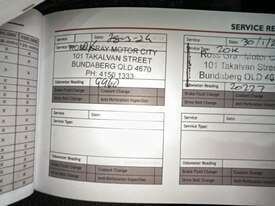 SERVICE RE
Service Date: 28-5-24
Service Date: 30/1/
ROSS GRAY MOTOR CITY
101 TAKALVAN STREET
BUNDABERG QLD 4670
PH: 4150 1333
Ross Gray Motor City
101 Takalvan Street
Bundaberg QLD 46
Odometer Reading
Odometer Reading
20227
Brake Fluid Change Coolant Change
Drive Belt Change Anti Perforation Inspection
Brake Fluid Change Coolant Change
Drive Belt Change Anti Perforation
Service Date:
Service Type:
Service Date:
Service Type:
Odometer Reading
Odometer Reading
Brake Fluid Change Coolant Change
Drive Belt Change Anti Perforation Inspection
Brake Fluid Change Coolant Change
Drive Belt Change